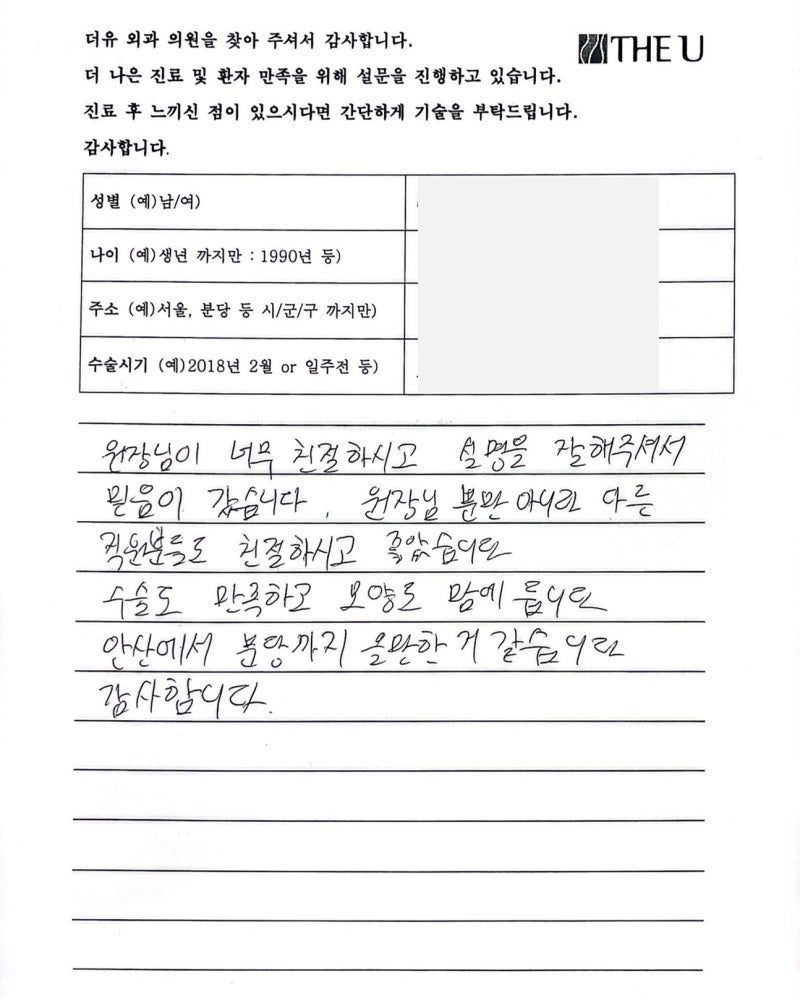 더유 외과 의원을 찾아 주셔서 감사합니다.
THE U
더 나은 진료 및 환자 만족을 위해 설문을 진행하고 있습니다.
진료 후 느끼신 점이 있으시다면 간단하게 기술을 부탁드립니다.
감사합니다.
성별 (예)남/여)
나이 (예)생년 까지만 : 1990년 등)
주소 (예)서울, 분당 등 시/군/구 까지만)
수술시기 (예)2018년 2월 or 일주전 등)
원장님이 너무 친절하시고 설명을 잘해주셔서
믿음이 갔습니다. 원장님 뿐만 아니라 다른
직원분들도 친절하시고 좋았습니다
수술도 만족하고 모양도 맘에 듭니다
안산에서 분당까지 올만한 거 같습니다
감사합니다.